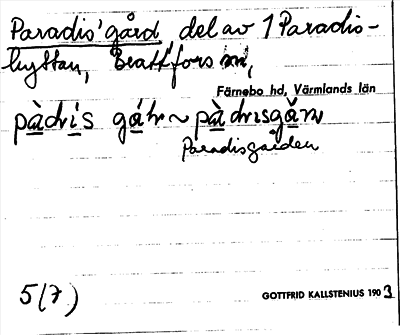 Paradis'gård del av 1 Paradis-
hyttan, Brattfors sn,
Färnebo hd, Värmlands län
pàdris gár ~ pàdrisgǡn
Paradisgården
5(7)
GOTTFRID KALLSTENIUS 1903